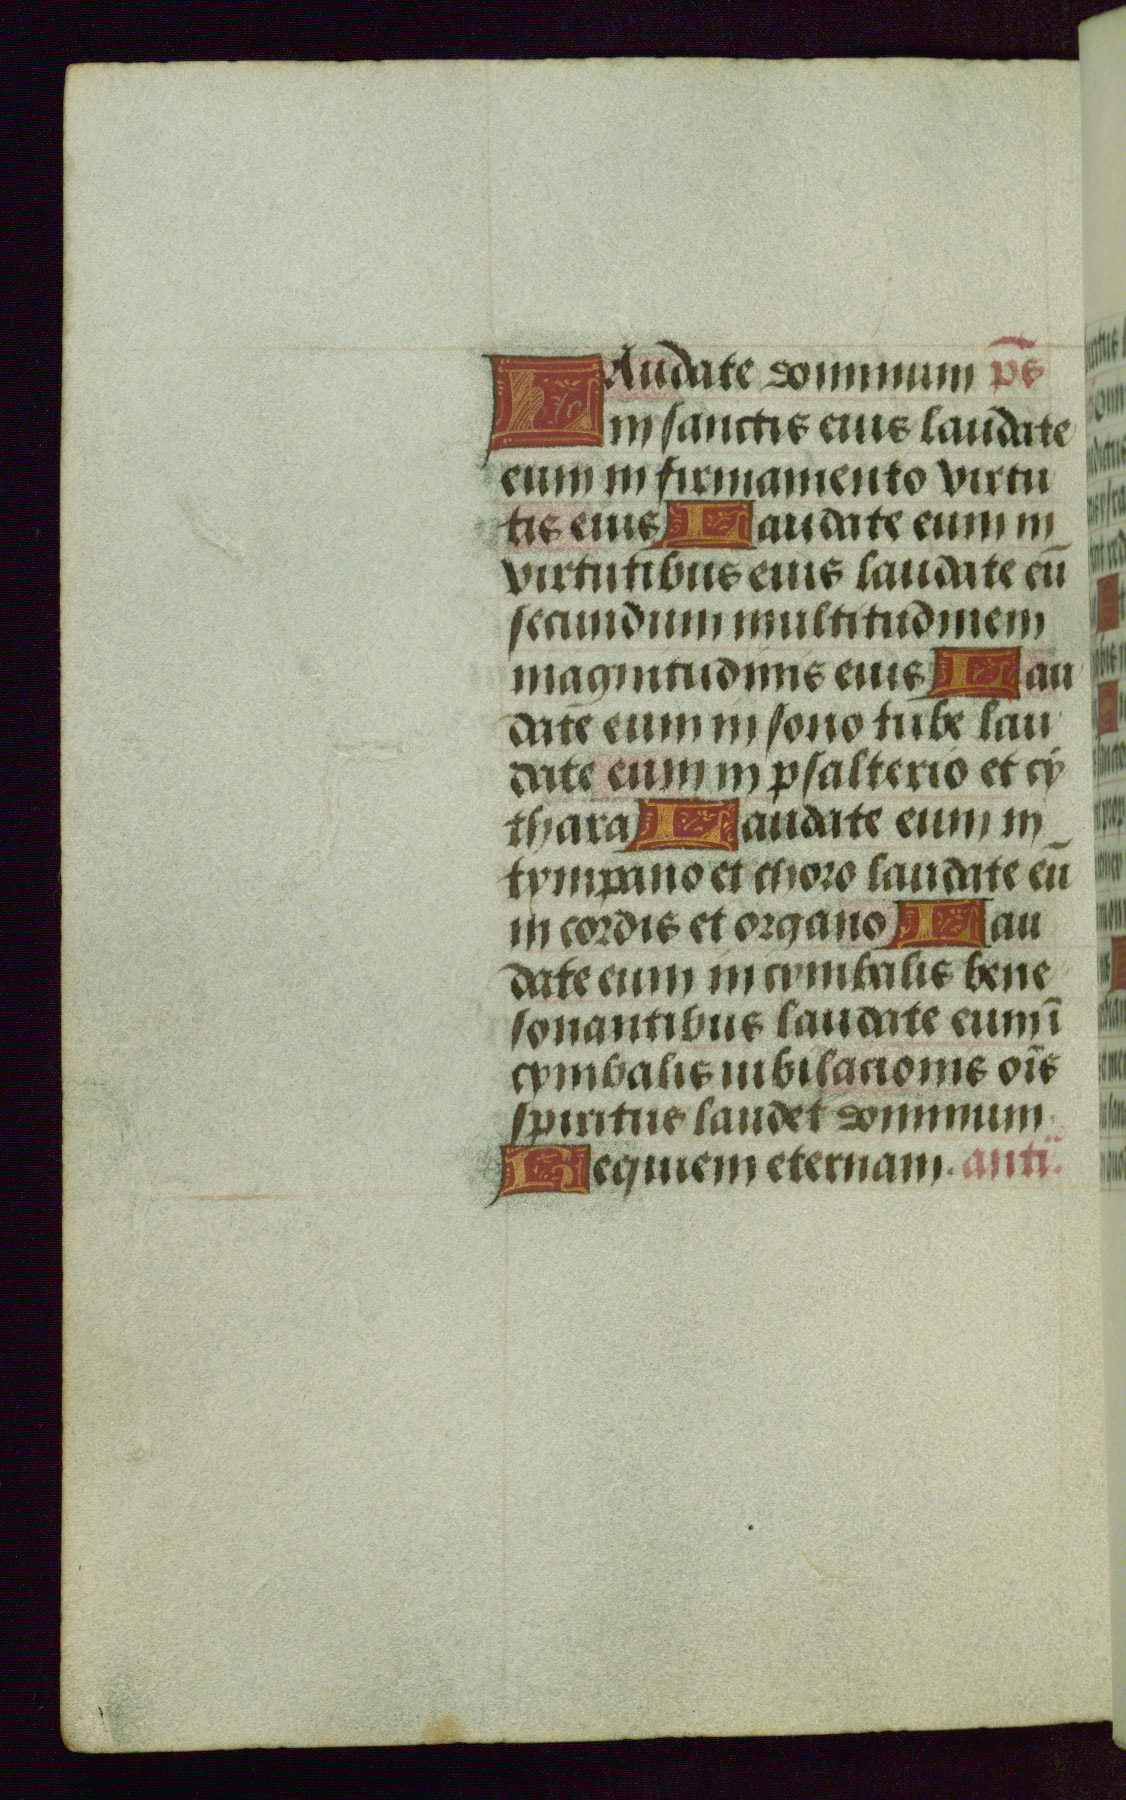 LAudate dominum ps̄
in sanctis eius laudate
eum in firmamento virtu
tis eius Laudate eum in
virtutibus eius laudate eū
secundum multitudinem
magnitudinis eius Lau
date eum in sono tube lau
date eum in psalterio et cy
thara Laudate eum in
tympano et choro laudate eū
in cordis et organo Lau
date eum in cymbalis bene
sonantibus laudate eum ī
cymbalis iubilacionis oīs
spiritus laudet dominum
Requiem eternam. anti.